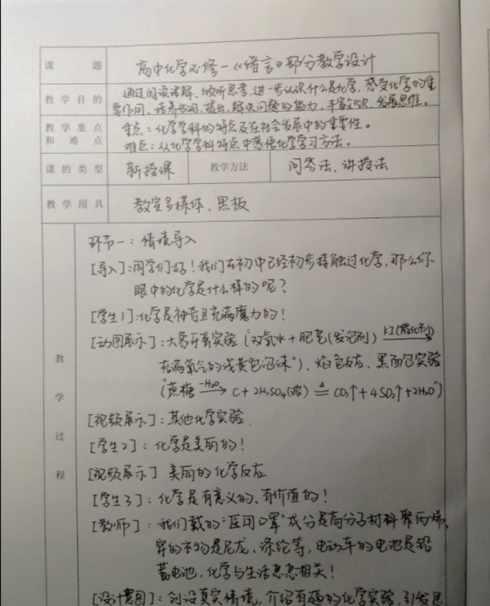 课 题 高中化学必修一《绪言》部分教学设计
教学目的 通过阅读理解、倾听思考,进一步认识什么是化学,感受化学的重
要作用,培养发现、提出、解决问题的能力,丰富知识,发展思维。
教学重点 重点:化学学科的特点及在社会发展中的重要性。
和难点 难点:从化学学科特点中感悟化学学习方法。
课的类型 新授课 教学方法 问答法、讲授法
教学用具 教室多媒体、黑板
教学过程
环节一:情境导入
[导入]:同学们好!我们在初中已经初步接触过化学,那么你
眼中的化学是什么样的呢?
[学生1]:化学是神奇且充满魔力的!
[动图展示]:大象牙膏实验("双氧水+肥皂(发泡剂) KI(催化剂)→
充满氧气的浅黄色泡沫")、焰色反应、黑面包实验
("蔗糖 -H₂O→ C+2H₂SO₄(浓) △= CO₂↑+2SO₂↑+2H₂O")
[视频展示]:其他化学实验
[学生2]:化学是美丽的!
[视频展示] 美丽的化学反应
[学生3]:化学是有意义的、有价值的!
[教师]:我们戴的"医用口罩"成分是高分子材料聚丙烯,
穿的衣物是尼龙、涤纶等,电动车的电池是铅
蓄电池,化学与生活息息相关!
[设计意图]:创设真实情境,介绍有趣的化学实验,引发思